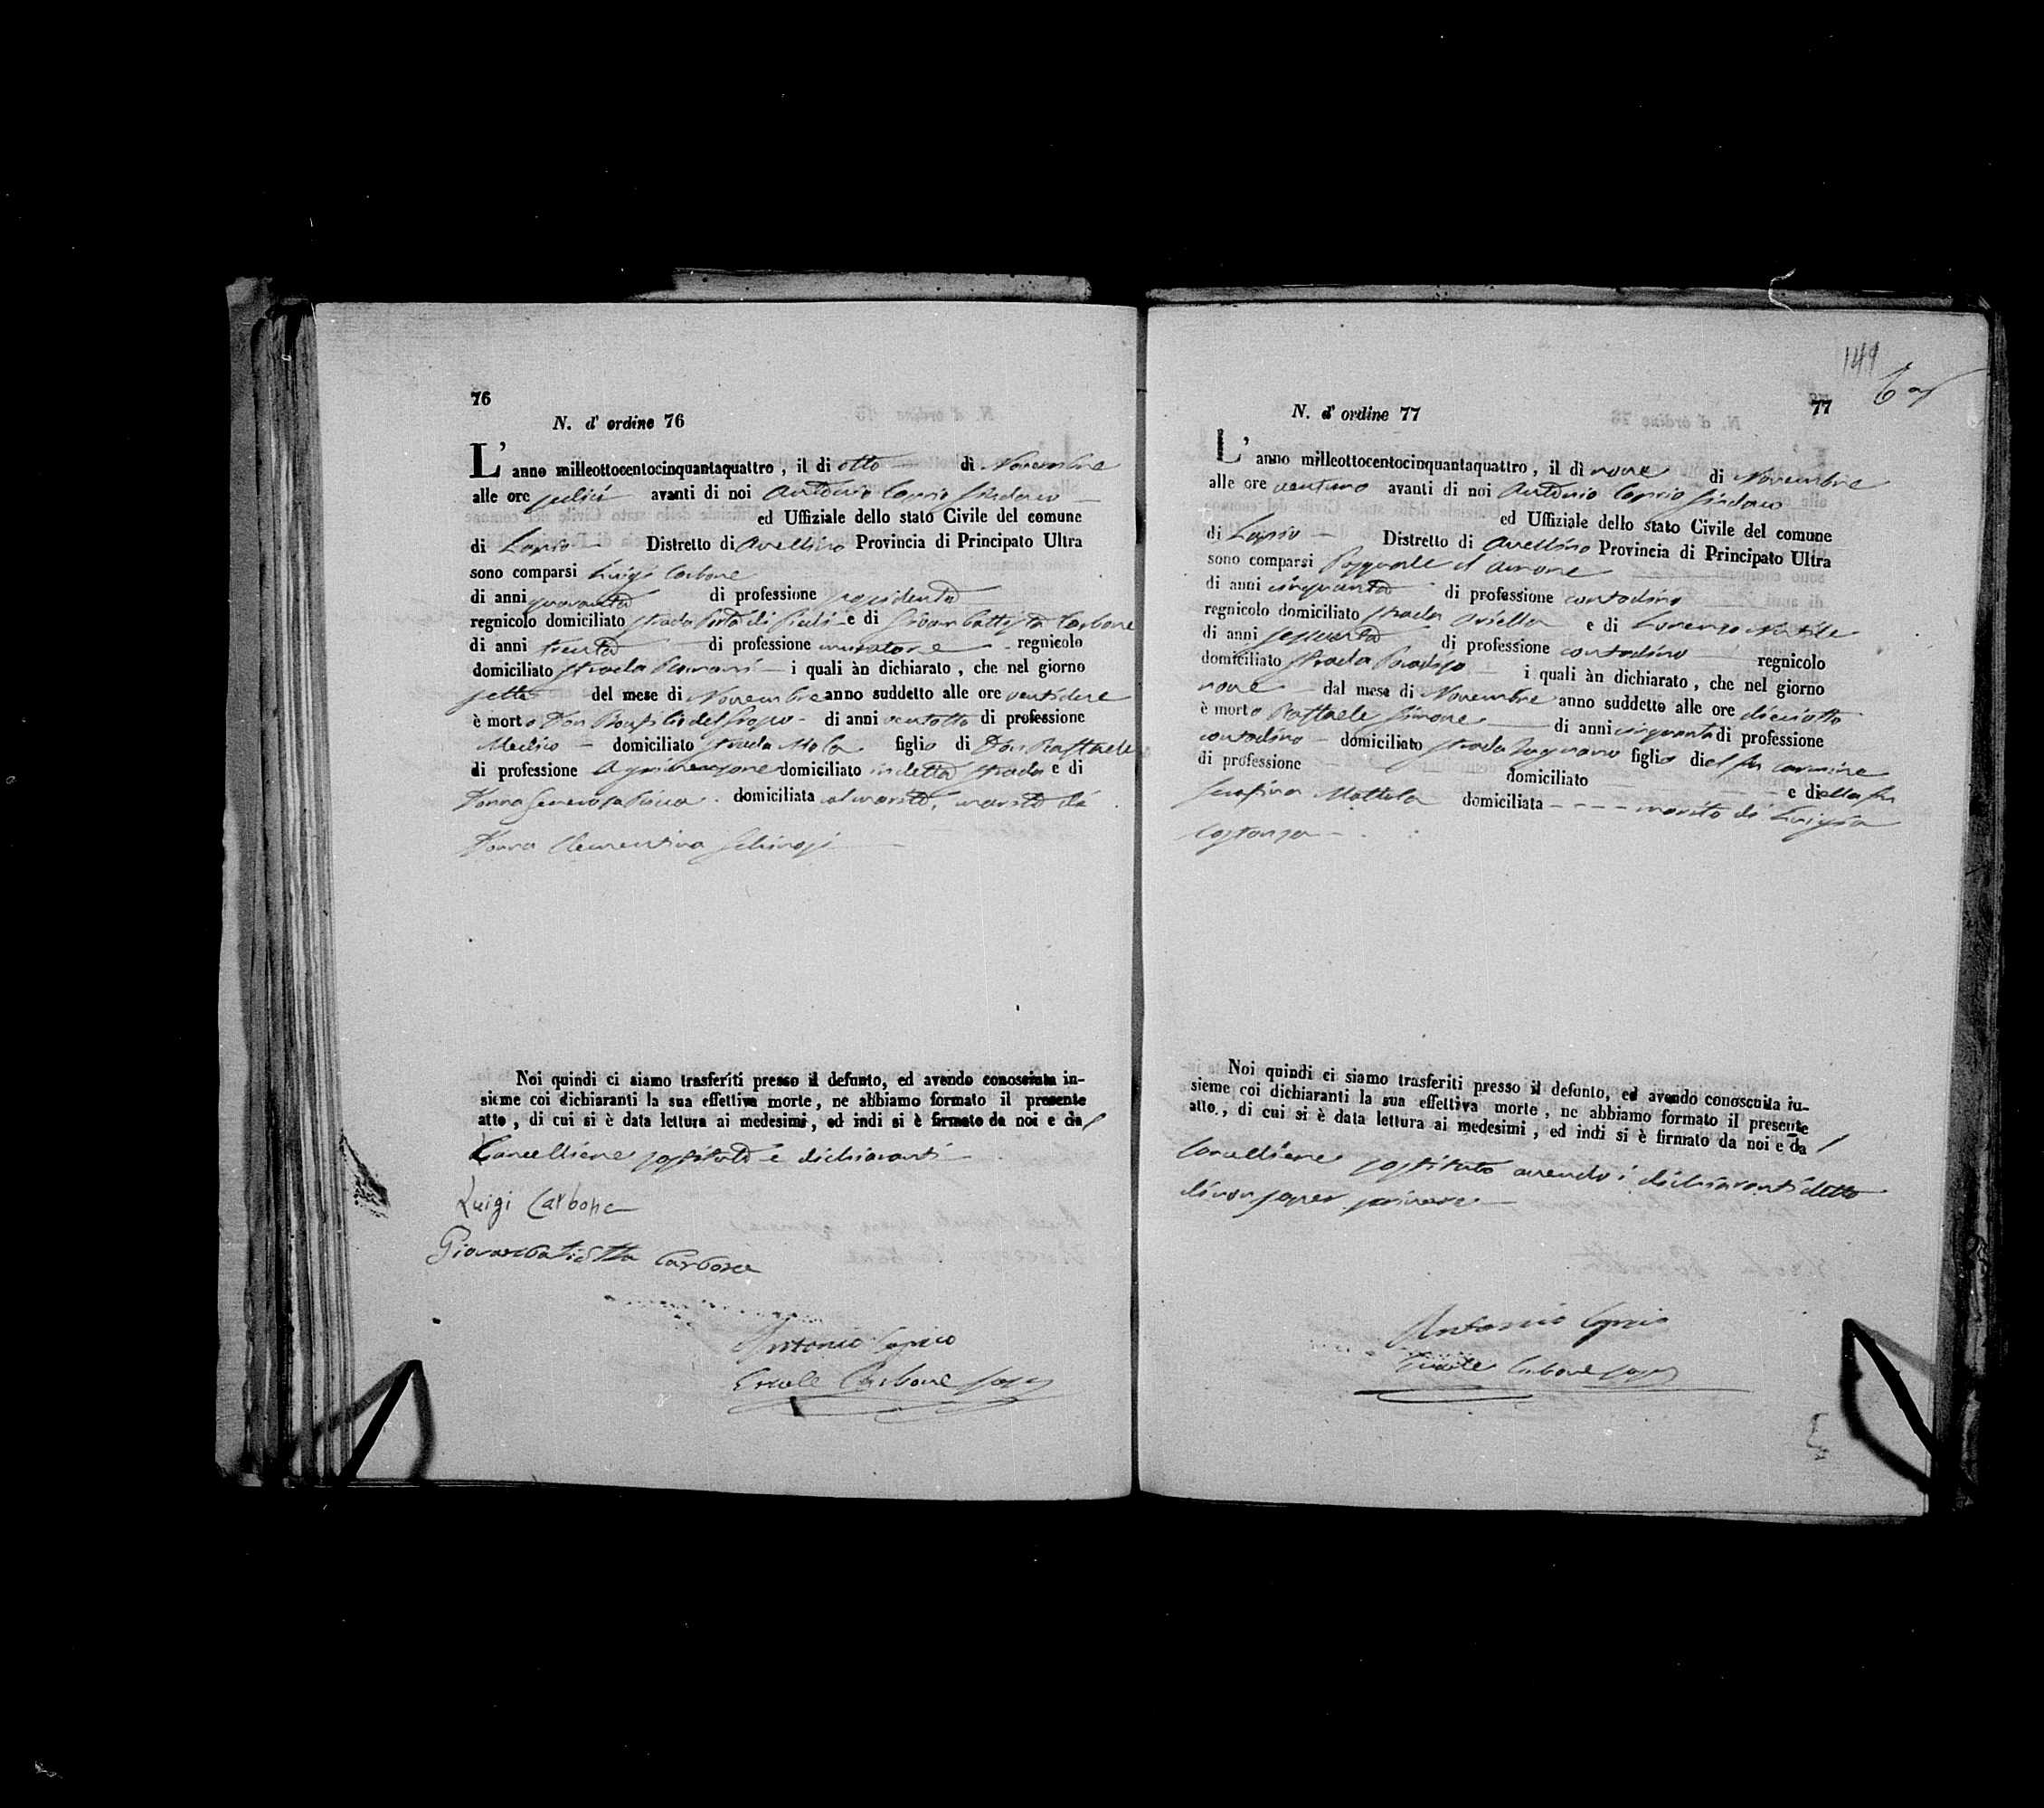 76
N. d' ordine 76
L' anno milleottocentocinquantaquattro, il di otto di Novembre
alle ore sedici avanti di noi Antonio Caprio Sindaco
ed Uffiziale dello stato Civile del comune
di Lapio Distretto di Avellino Provincia di Principato Ultra
sono comparsi Luigi Carbone
di anni quaranta di professione possidente
regnicolo domiciliato strada e di Giovambattista Carbone
di anni trenta di professione muratore regnicolo
domiciliato strada i quali àn dichiarato, che nel giorno
sette del mese di Novembre anno suddetto alle ore ventidue
è morto Don del di anni ventotto di professione
Medico domiciliato strada Mola figlio di Don Raffaele
di professione domiciliato in detta strada e di
Donna Generosa domiciliata col marito, marito di
Donna Clementina
Noi quindi ci siamo trasferiti presso il defunto, ed avendo conosciuta in-
sieme coi dichiaranti la sua effettiva morte, ne abbiamo formato il presente
atto, di cui si è data lettura ai medesimi, ed indi si è firmato da noi e da
Cancelliere sostituto e dichiaranti
Luigi Carbone
Giovambatista Carbone
Antonio Caprio
Ercole Carbone
149
77
N. d' ordine 77
L' anno milleottocentocinquantaquattro, il dì nove di Novembre
alle ore ventuno avanti di noi Antonio Caprio Sindaco
ed Uffiziale dello stato Civile del comune
di Lapio Distretto di Avellino Provincia di Principato Ultra
sono comparsi Pasquale
di anni cinquanta di professione contadino
regnicolo domiciliato strada Ariella e di Lorenzo
di anni sessanta di professione contadino regnicolo
domiciliato strada Paradiso i quali àn dichiarato, che nel giorno
nove dal mese di Novembre anno suddetto alle ore diciotto
è morto Raffaele Simone di anni cinquanta di professione
contadino domiciliato strada figlio del fu Carmine
di professione domiciliato e della fu
Serafina domiciliata marito di Luigia
Costanza
Noi quindi ci siamo trasferiti presso il defunto, ed avendo conosciuta in-
sieme coi dichiaranti la sua effettiva morte, ne abbiamo formato il presente
atto, di cui si è data lettura ai medesimi, ed indi si è firmato da noi e da
Cancelliere sostituto avendo i dichiaranti detto
di non saper scrivere
Antonio Caprio
Ercole Carbone